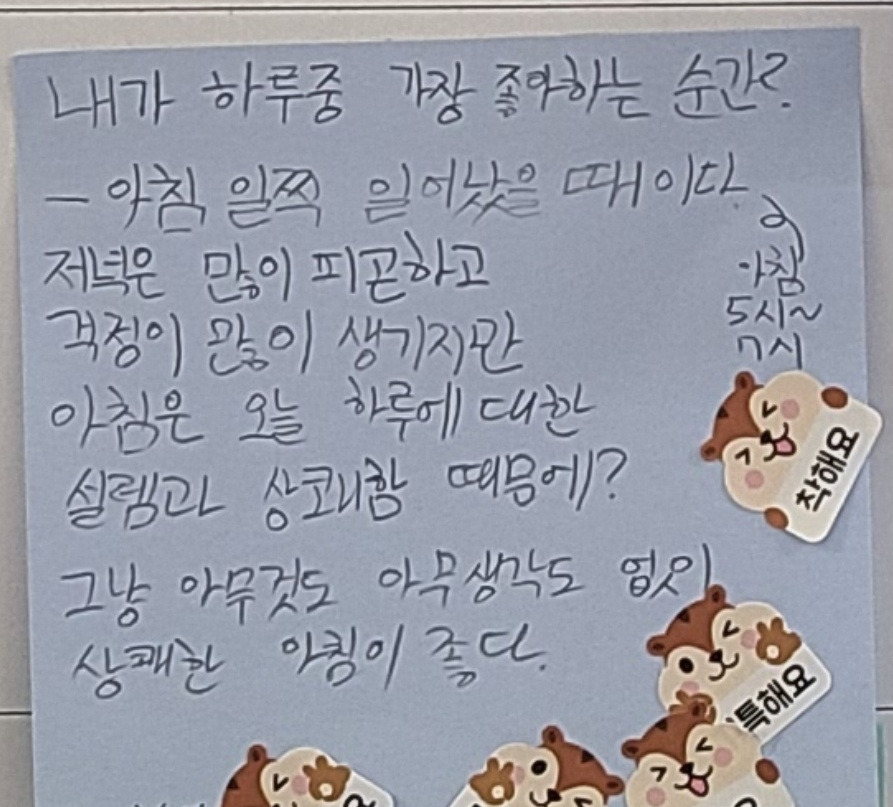 내가 하루중 가장 좋아하는 순간?
- 아침 일찍 일어났을 때이다.
아침
5시~
7시
저녁은 많이 피곤하고
걱정이 많이 생기지만
아침은 오늘 하루에 대한
설렘과 상쾨함 때문에?
그냥 아무것도 아무생각도 없이
상쾌한 아침이 좋다.
착해요
특해요